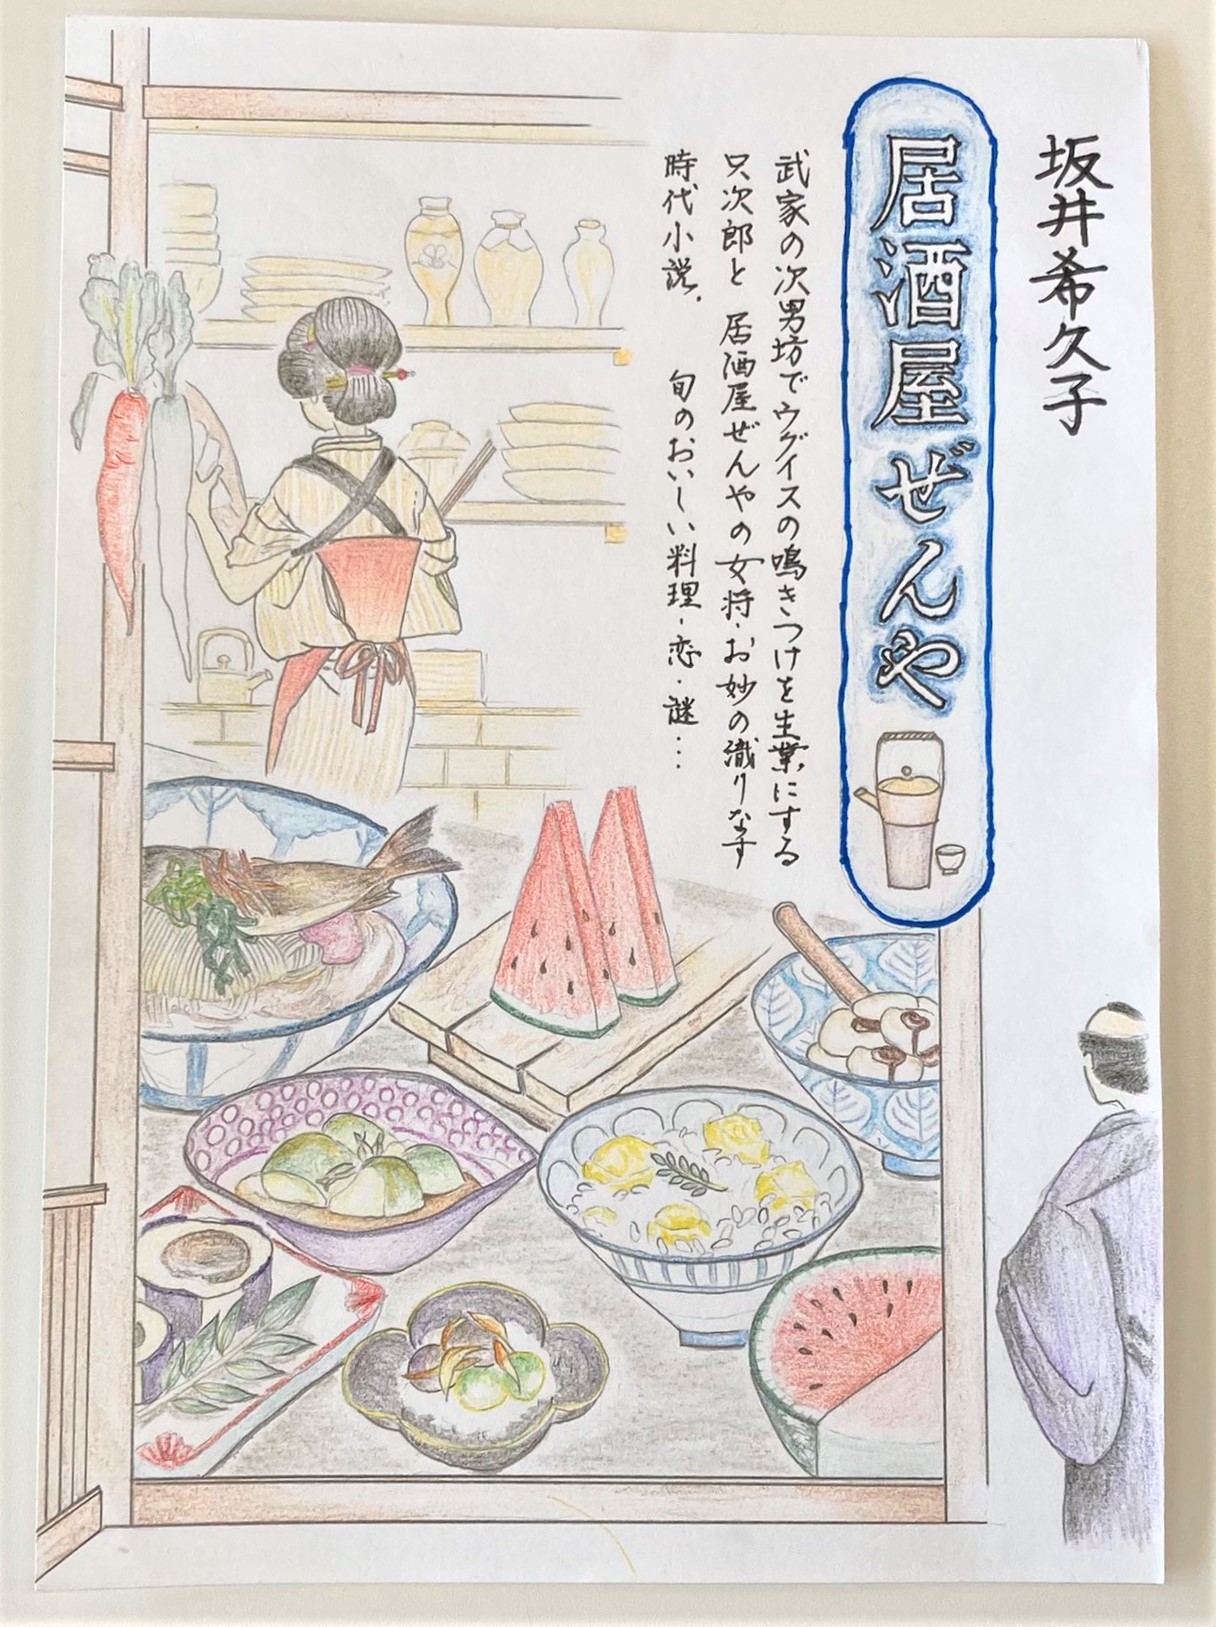 坂井希久子
居酒屋ぜんや
武家の次男坊でウグイスの鳴きつけを生業にする
只次郎と 居酒屋ぜんやの女将・お妙の織りなす
時代小説. 旬のおいしい料理・恋・謎…